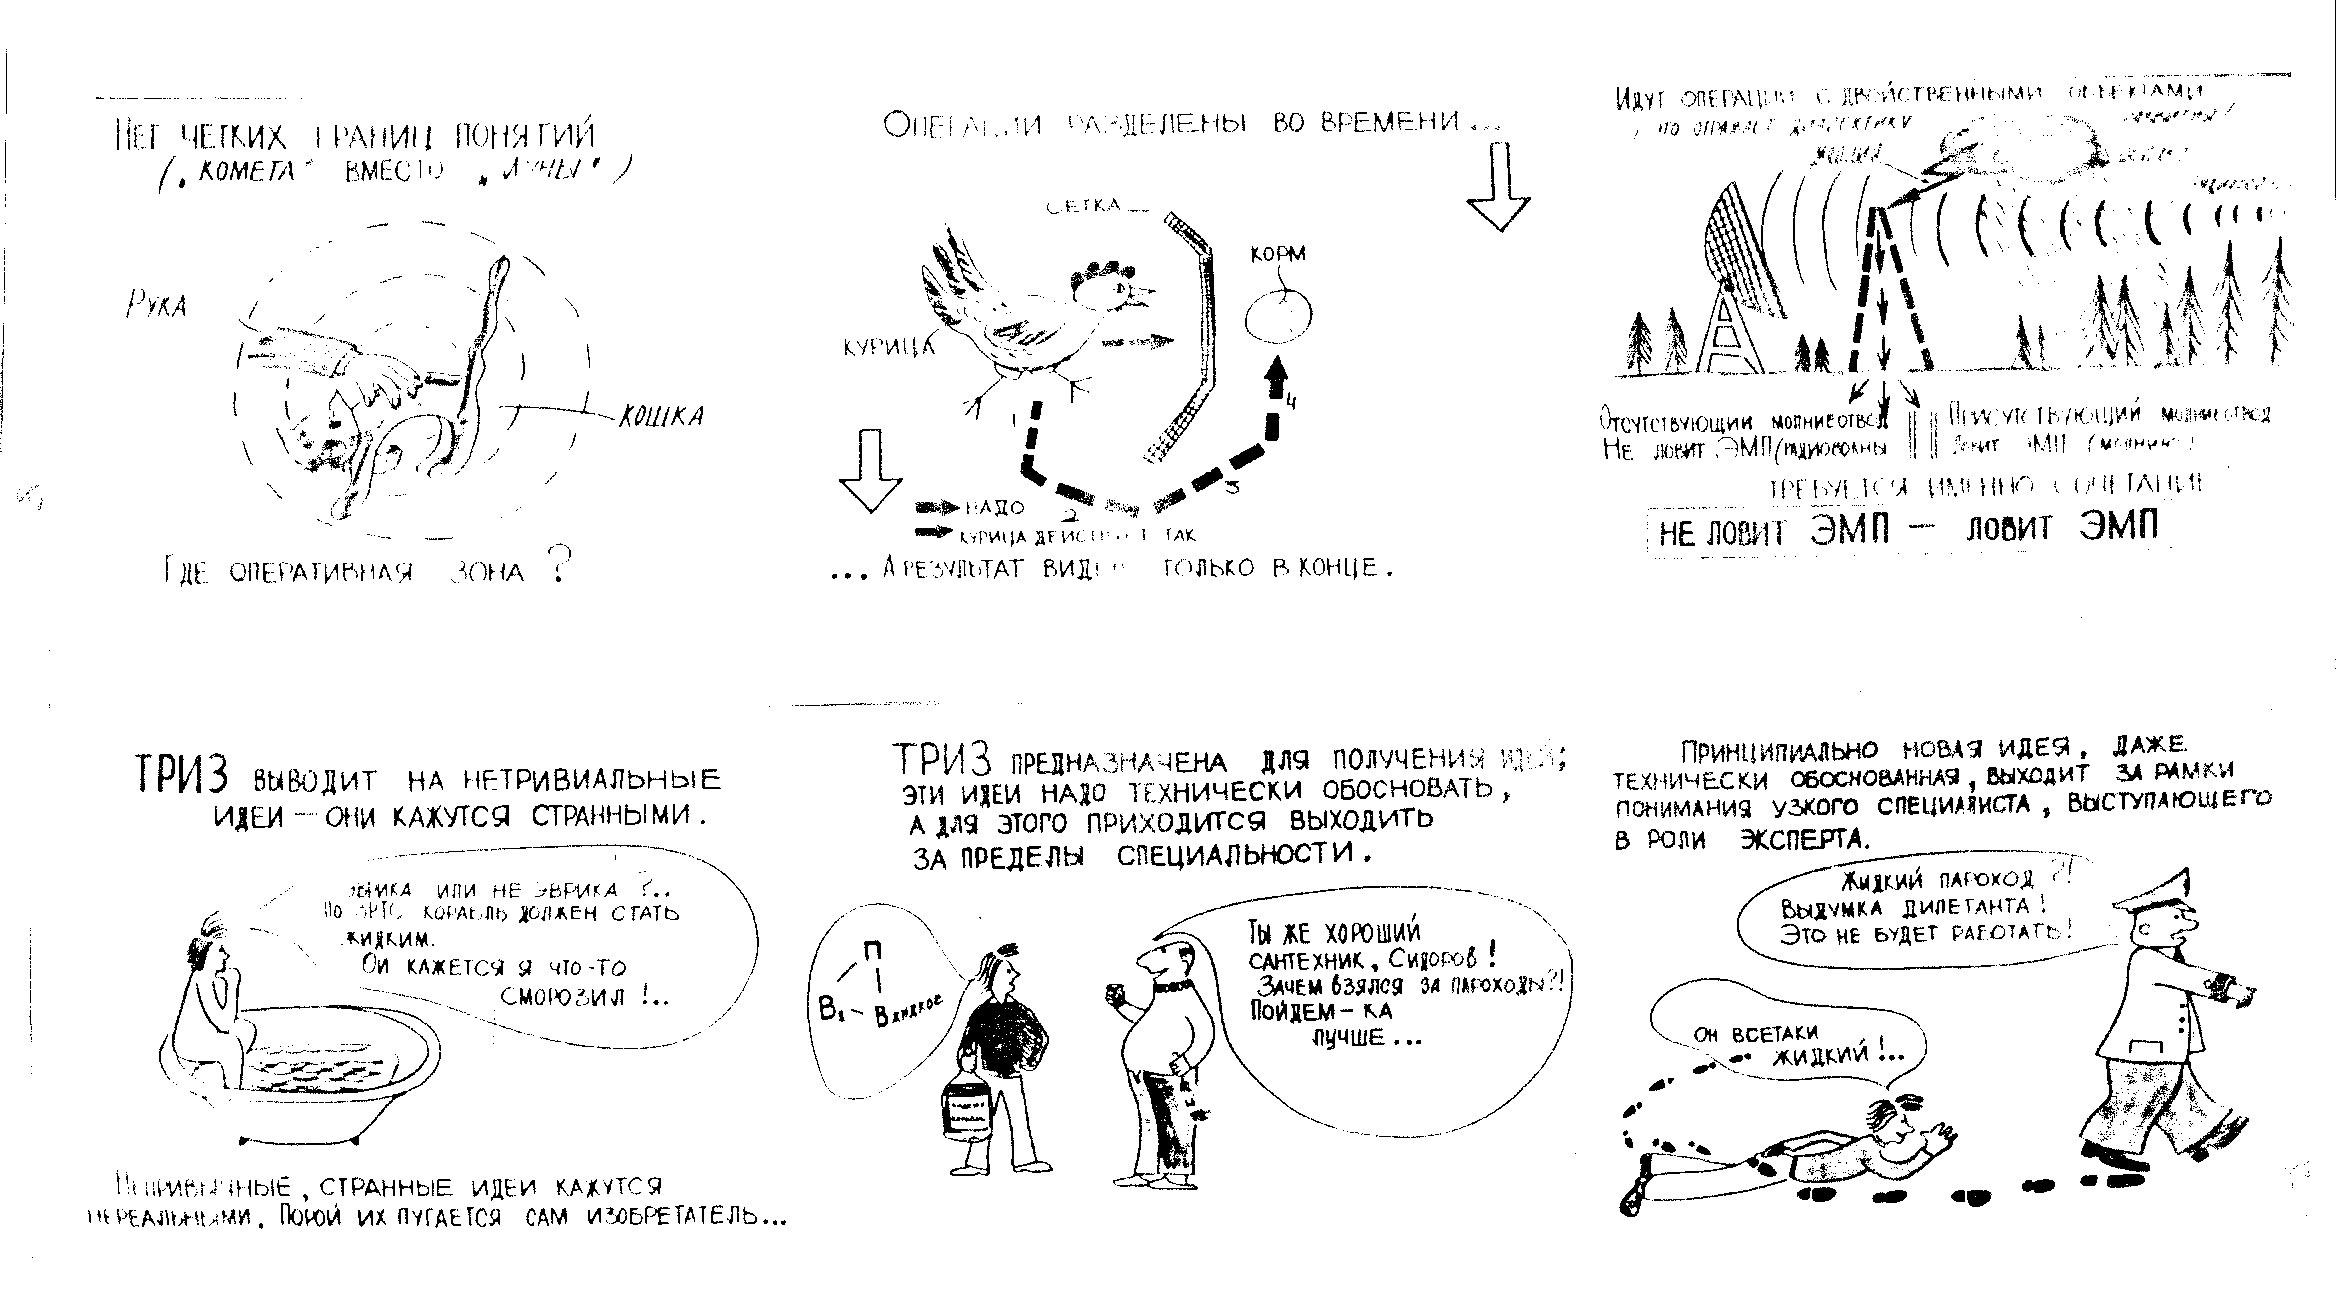 НЕТ ЧЕТКИХ ГРАНИЦ ПОНЯТИЙ
(„КОМЕТА" ВМЕСТО „ЛУНЫ")
РУКА
КОШКА
ГДЕ ОПЕРАТИВНАЯ ЗОНА ?
ОПЕРАЦИИ РАЗДЕЛЕНЫ ВО ВРЕМЕНИ...
СЕТКА
КОРМ
КУРИЦА
1
2
3
4
НАДО
КУРИЦА ДЕЙСТВУЕТ ТАК
... А РЕЗУЛЬТАТ ВИДЕН ТОЛЬКО В КОНЦЕ.
ИДУТ ОПЕРАЦИИ С ДВОЙСТВЕННЫМИ ОБЪЕКТАМИ
МОЛНИЯ
ОТСУТСТВУЮЩИЙ МОЛНИЕОТВОД
НЕ ЛОВИТ ЭМП (РАДИОВОЛНЫ
ПРИСУТСТВУЮЩИЙ МОЛНИЕОТВОД
ЛОВИТ ЭМП (МОЛНИЮ)
ТРЕБУЕТСЯ ИМЕННО СОЧЕТАНИЕ
НЕ ЛОВИТ ЭМП — ЛОВИТ ЭМП
ТРИЗ ВЫВОДИТ НА НЕТРИВИАЛЬНЫЕ
ИДЕИ — ОНИ КАЖУТСЯ СТРАННЫМИ.
ЭВРИКА ИЛИ НЕ ЭВРИКА ?..
ПО ЭРТС КОРАБЛЬ ДОЛЖЕН СТАТЬ
ЖИДКИМ.
ОЙ КАЖЕТСЯ Я ЧТО-ТО
СМОРОЗИЛ !..
НЕПРИВЫЧНЫЕ, СТРАННЫЕ ИДЕИ КАЖУТСЯ
НЕРЕАЛЬНЫМИ. ПОРОЙ ИХ ПУГАЕТСЯ САМ ИЗОБРЕТАТЕЛЬ...
ТРИЗ ПРЕДНАЗНАЧЕНА ДЛЯ ПОЛУЧЕНИЯ ИДЕЙ;
ЭТИ ИДЕИ НАДО ТЕХНИЧЕСКИ ОБОСНОВАТЬ,
А ДЛЯ ЭТОГО ПРИХОДИТСЯ ВЫХОДИТЬ
ЗА ПРЕДЕЛЫ СПЕЦИАЛЬНОСТИ.
П
В₁ - В жидкое
ТЫ ЖЕ ХОРОШИЙ
САНТЕХНИК, СИДОРОВ !
ЗАЧЕМ ВЗЯЛСЯ ЗА ПАРОХОДЫ?!
ПОЙДЕМ-КА
ЛУЧШЕ...
ПРИНЦИПИАЛЬНО НОВАЯ ИДЕЯ, ДАЖЕ
ТЕХНИЧЕСКИ ОБОСНОВАННАЯ, ВЫХОДИТ ЗА РАМКИ
ПОНИМАНИЯ УЗКОГО СПЕЦИАЛИСТА, ВЫСТУПАЮЩЕГО
В РОЛИ ЭКСПЕРТА.
ЖИДКИЙ ПАРОХОД ?!
ВЫДУМКА ДИЛЕТАНТА !
ЭТО НЕ БУДЕТ РАБОТАТЬ!
ОН ВСЕТАКИ
ЖИДКИЙ !...